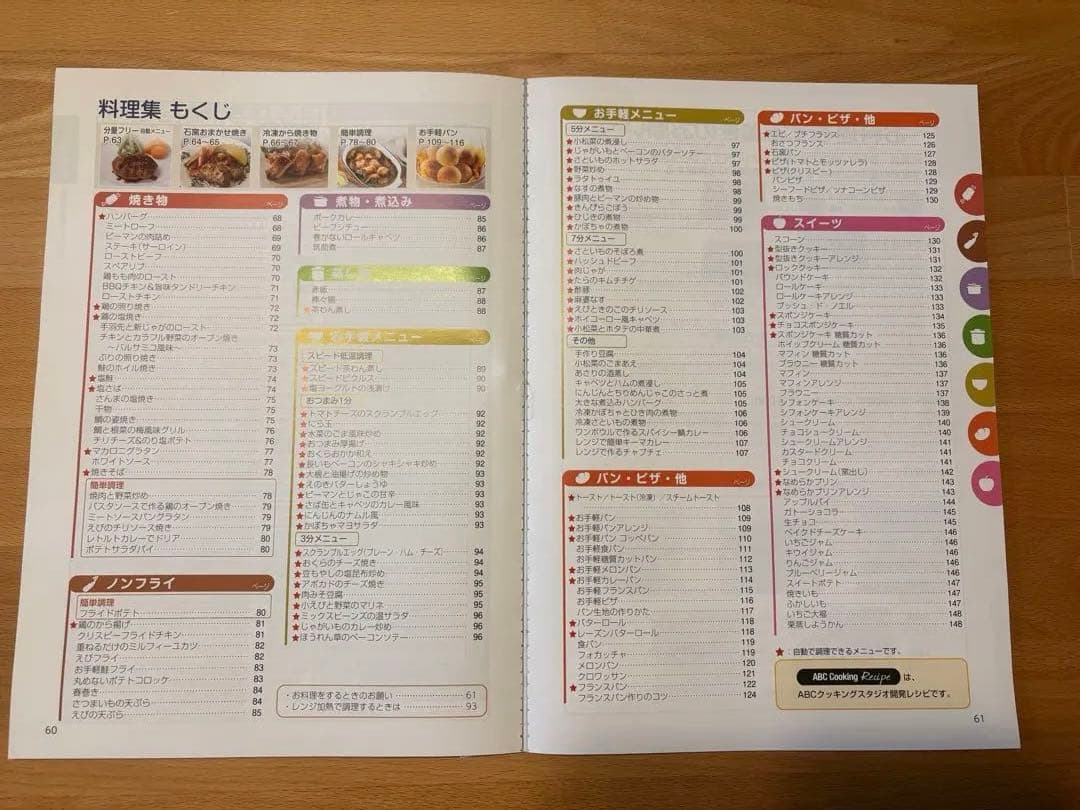 料理集 もくじ
分量フリー 自動メニュー
P.63
石窯おまかせ焼き
P.64~65
冷凍から焼き物
P.66~67
簡単調理
P.78~80
お手軽パン
P.109~116
焼き物 ページ
★ハンバーグ 68
ミートローフ 68
ピーマンの肉詰め 69
ステーキ(サーロイン) 69
ローストビーフ 70
スペアリブ 70
鶏もも肉のロースト 70
BBQチキン&旨味タンドリーチキン 71
ローストチキン 71
★鶏の照り焼き 72
★鶏の塩焼き 72
手羽先と新じゃがのロースト 72
チキンとカラフル野菜のオーブン焼き
~バルサミコ風味~ 73
ぶりの照り焼き 73
鮭のホイル焼き 73
★塩鮭 74
★塩さば 74
さんまの塩焼き 75
干物 75
鯛の姿焼き 75
鯛と根菜の梅風味グリル 76
チリチーズ&のり塩ポテト 76
★マカロニグラタン 77
ホワイトソース 77
★焼きそば 78
簡単調理
焼肉と野菜炒め 78
パスタソースで作る鶏のオーブン焼き 79
ミートソースパングラタン 79
えびのチリソース焼き 79
レトルトカレーでドリア 80
ポテトサラダパイ 80
ノンフライ ページ
簡単調理
フライドポテト 80
★鶏のから揚げ 81
クリスピーフライドチキン 81
重ねるだけのミルフィーユカツ 82
えびフライ 82
お手軽鮭フライ 83
丸めないポテトコロッケ 83
春巻き 84
さつまいもの天ぷら 84
えびの天ぷら 85
煮物・煮込み ページ
ポークカレー 85
ビーフシチュー 86
巻かないロールキャベツ 86
筑前煮 87
赤飯 87
棒々鶏 88
★茶わん蒸し 88
お手軽メニュー
スピード低温調理
★スピード茶わん蒸し 89
★スピードピクルス 90
★塩ヨーグルトの浅漬け 90
おつまみ1分
★トマトチーズのスクランブルエッグ 92
★にら玉 92
★水菜のごま風味炒め 92
★おつまみ厚揚げ 92
★おくらおかか和え 92
★長いもベーコンのシャキシャキ炒め 92
★大根と油揚げの炒め物 93
★えのきバターしょうゆ 93
★ピーマンとじゃこの甘辛 93
★さば缶とキャベツのカレー風味 93
★にんじんのナムル風 93
★かぼちゃマヨサラダ 93
3分メニュー
★スクランブルエッグ(プレーン・ハム・チーズ) 94
★おくらのチーズ焼き 94
★豆もやしの塩昆布炒め 94
★アボカドのチーズ焼き 95
★肉みそ豆腐 95
★小えびと野菜のマリネ 95
★ミックスビーンズの温サラダ 95
★じゃがいものカレー炒め 96
★ほうれん草のベーコンソテー 96
・お料理をするときのお願い 61
・レンジ加熱で調理するときは 93
60
お手軽メニュー ページ
5分メニュー
★小松菜の煮浸し 97
★じゃがいもとベーコンのバターソテー 97
★さといものホットサラダ 97
★野菜炒め 98
★ラタトゥイユ 98
★なすの煮物 98
★豚肉とピーマンの炒め物 99
★きんぴらごぼう 99
★ひじきの煮物 99
★かぼちゃの煮物 100
7分メニュー
★さといものそぼろ煮 100
★ハッシュドビーフ 101
★肉じゃが 101
★たらのキムチチゲ 101
★酢豚 102
★麻婆なす 102
★えびときのこのチリソース 103
★ホイコーロー風キャベツ 103
★小松菜とホタテの中華煮 103
その他
手作り豆腐 104
小松菜のごまあえ 104
あさりの酒蒸し 104
キャベツとハムの煮浸し 105
にんじんとちりめんじゃこのさっと煮 105
大きな煮込みハンバーグ 105
冷凍かぼちゃとひき肉の煮物 106
冷凍さといもの煮物 106
ワンボウルで作るスパイシー鯖カレー 106
レンジで簡単キーマカレー 107
レンジで作るチャプチェ 107
パン・ピザ・他 ページ
★トースト/トースト(冷凍)/スチームトースト
108
★お手軽パン 109
★お手軽パンアレンジ 109
★お手軽パン コッペパン 110
お手軽食パン 111
お手軽糖質カットパン 112
★お手軽メロンパン 113
★お手軽カレーパン 114
お手軽フランスパン 115
お手軽ピザ 116
パン生地の作りかた 117
★バターロール 118
★レーズンバターロール 118
食パン 119
フォカッチャ 119
メロンパン 120
クロワッサン 121
★フランスパン 122
フランスパン作りのコツ 124
パン・ピザ・他 ページ
★エピ/プチフランス 125
おさつフランス 126
★石窯パン 127
★ピザ(トマトとモッツァレラ) 128
★ピザ(クリスピー) 128
パンピザ 129
シーフードピザ/ツナコーンピザ 129
焼きもち 130
スイーツ ページ
スコーン 130
★型抜きクッキー 131
★型抜きクッキーアレンジ 131
★ロッククッキー 132
パウンドケーキ 132
ロールケーキ 133
ロールケーキアレンジ 133
ブッシュ・ド・ノエル 133
★スポンジケーキ 134
★チョコスポンジケーキ 135
★スポンジケーキ 糖質カット 136
ホイップクリーム 糖質カット 136
マフィン 糖質カット 136
ブラウニー 糖質カット 136
マフィン 137
マフィンアレンジ 137
ブラウニー 137
シフォンケーキ 138
シフォンケーキアレンジ 139
シュークリーム 140
チョコシュークリーム 140
シュークリームアレンジ 141
カスタードクリーム 141
チョコクリーム 141
★シュークリーム(窯出し) 142
★なめらかプリン 143
★なめらかプリンアレンジ 143
アップルパイ 144
ガトーショコラ 145
生チョコ 145
ベイクドチーズケーキ 146
いちごジャム 146
キウイジャム 146
りんごジャム 146
ブルーベリージャム 146
スイートポテト 147
焼きいも 147
ふかしいも 147
いちご大福 148
栗蒸しようかん 148
★:自動で調理できるメニューです。
ABC Cooking Recipe は、
ABCクッキングスタジオ開発レシピです。
61